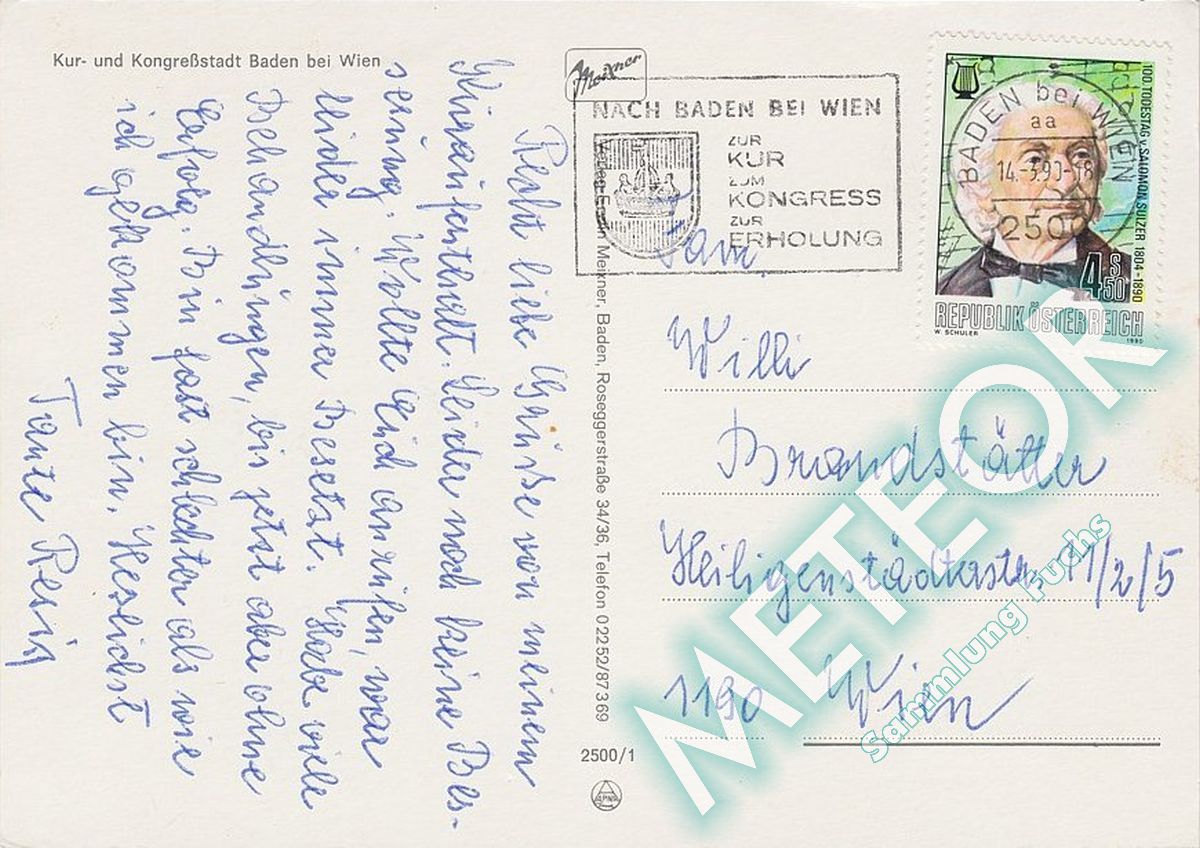 Kur- und Kongreßstadt Baden bei Wien
Meixner
NACH BADEN BEI WIEN
ZUR
KUR
ZUM
KONGRESS
ZUR
ERHOLUNG
100. TODESTAG V. SALOMON SULZER 1804-1890
BADEN bei WIEN
aa
14.-3.90-18
2500
4 S 50
REPUBLIK ÖSTERREICH
W. SCHULER
1990
Recht liebe Grüße von meinem
Kuraufenthalt. Leider noch keine Bes-
serung. Wollte Euch anrufen, war
leider immer Besetzt. Habe viele
Behandlungen, bis jetzt aber ohne
Erfolg. Bin fast schlechter als wie
ich gekommen bin. Herzlichst
Tante Resi
Verlag Erwin Meixner, Baden, Roseggerstraße 34/36, Telefon 0 22 52/87 3 69
2500/1
Fam.
Willi
Brandstätter
Heiligenstädterstr. 11/2/5
1190 Wien
METEOR
Sammlung Fuchs